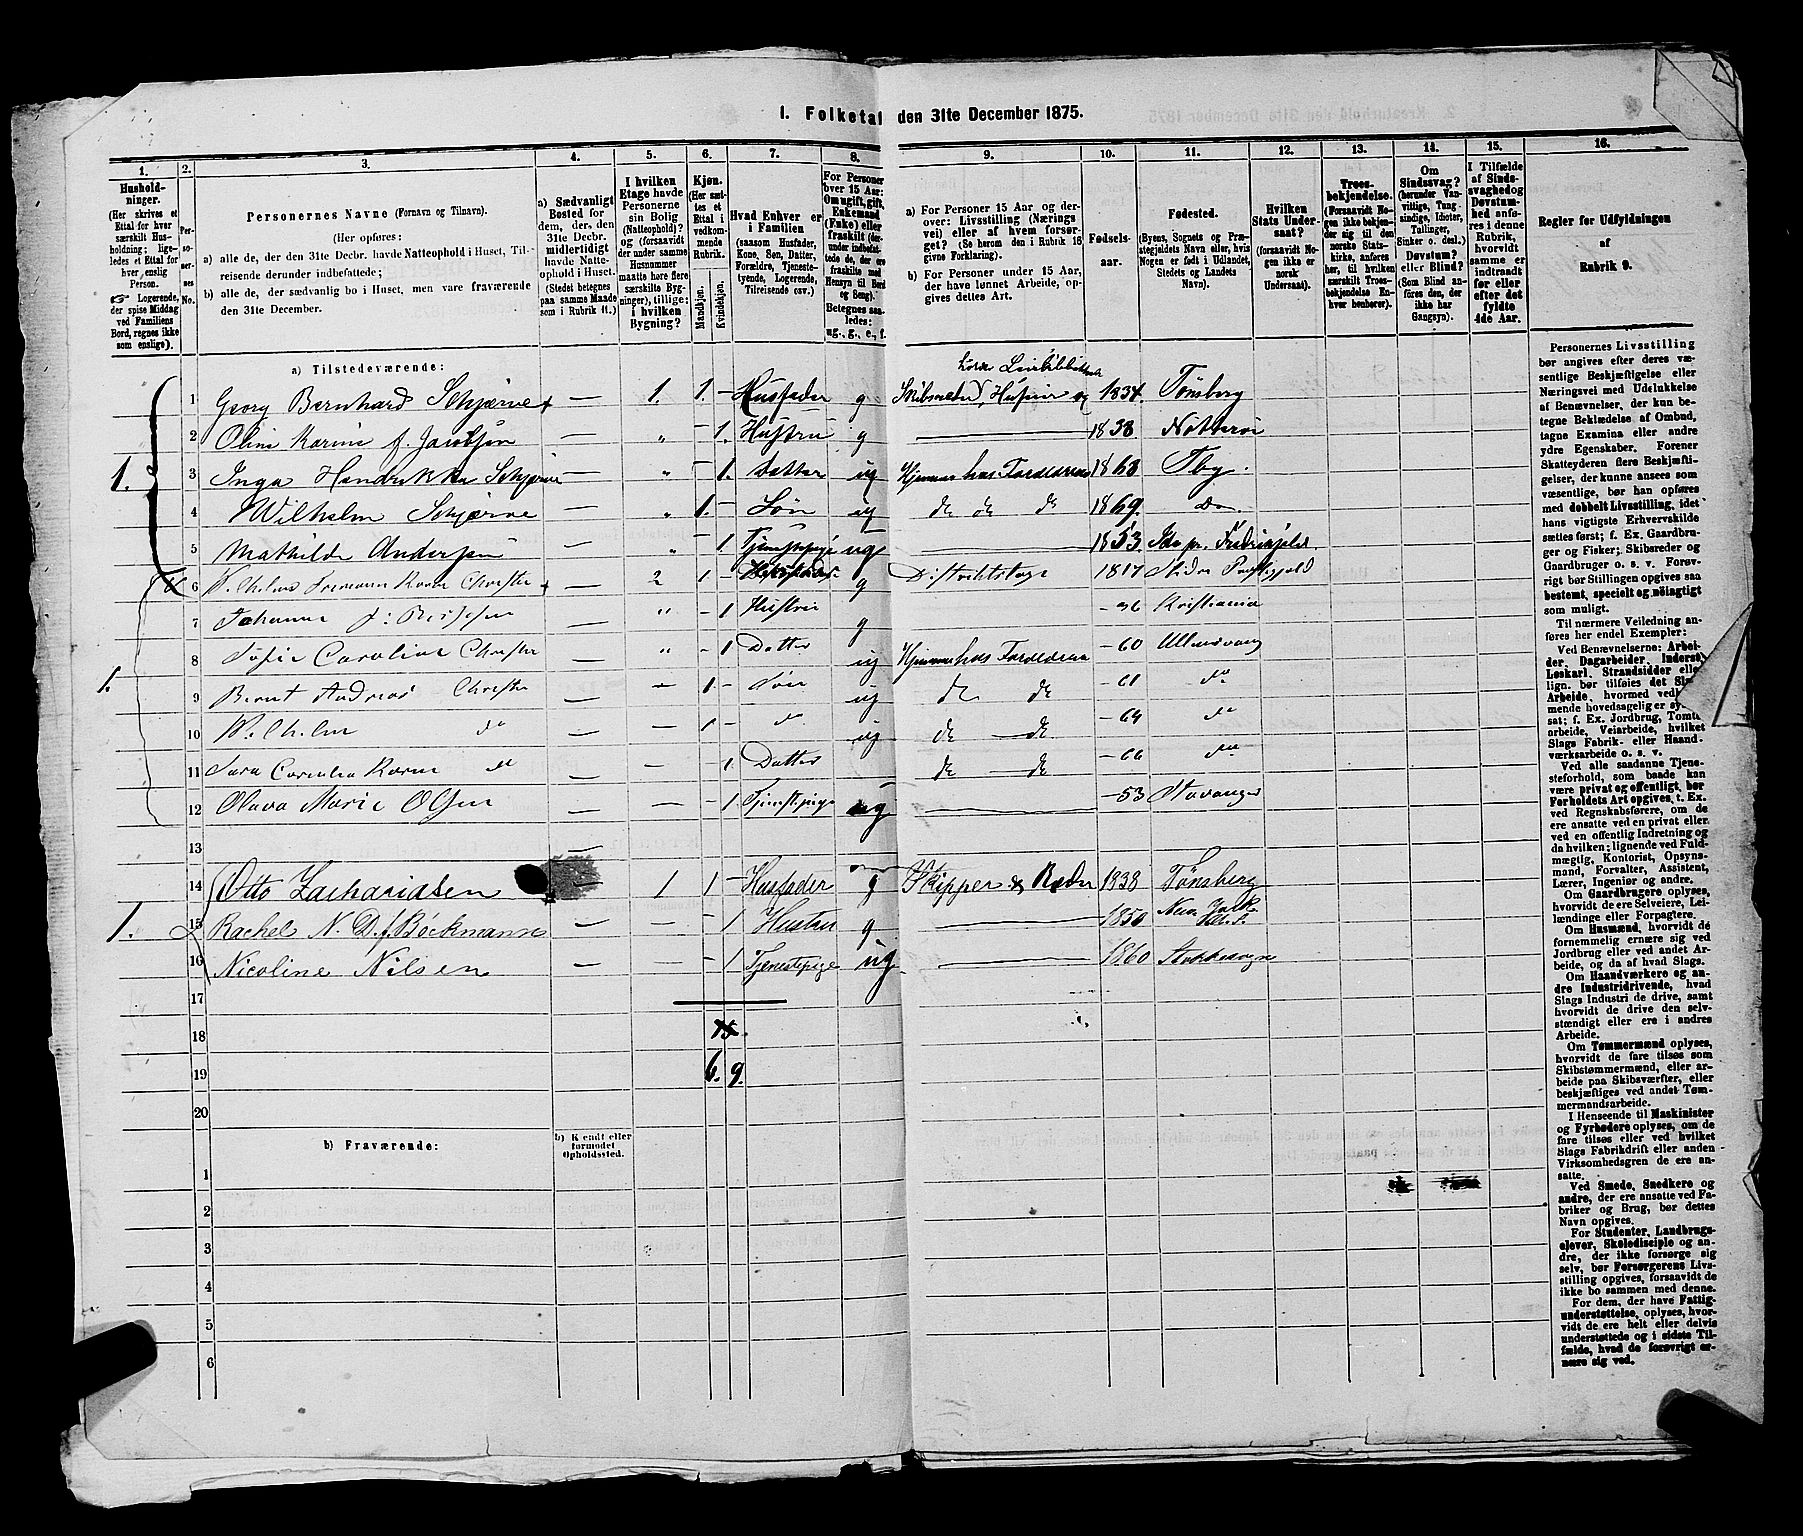 1. Folketal den 31te December 1875.
1. 2. 3. 4. 5. 6. 7. 8. 9. 10. 11. 12. 13. 14. 15. 16.
Husholdninger.
(Her skrives et
Ettal for hver
særskilt Husholdning;
ligeledes et Ettal for
hver enslig
Person.
☞ Logerende,
der spise Middag
ved Familiens
Bord, regnes ikke
som enslige).
Personernes No.
Personernes Navne (Fornavn og Tilnavn).
(Her opføres:
a) alle de, der den 31te Decbr. havde Natteophold i Huset, Tilreisende derunder indbefattede;
b) alle de, der sædvanlig bo i Huset, men vare fraværende
den 31te December.
a) Sædvanligt
Bosted for
dem, der den
31te Decbr. havde
midlertidigt
Natteophold i Huset.
(Stedet betegnes
paa samme Maade
som i Rubrik 11.)
I hvilken
Etage havde
Personerne
sin Bolig
(Natteophold)?
og (forsaavidt
der under samme
Husnummer
maatte høre flere
særskilte Bygninger), tillige:
i hvilken
Bygning?
Kjøn.
(Her sættes et
Ettal i
vedkommende
Rubrik.
Mandkjøn.
Kvindekjøn.
Hvad Enhver er
i Familien
(saasom Husfader,
Kone, Søn, Datter,
Forældre, Tjenestetyende, Logerende,
Tilreisende osv.)
For Personer
over 15 Aar:
Om ugift, gift,
Enkemand
(Enke) eller
fraskilt
Betegnes saaledes:
ug., g., e., f.
a) For Personer 15 Aar og derover: Livsstilling (Næringsvei) eller af hvem forsørget? (Se herom den i Rubrik 16
givne Forklaring).
b) For Personer under 15 Aar,
der have lønnet Arbeide, opgives dettes Art.
Fødselsaar.
Fødested.
(Byens, Sognets og Præstegjeldets Navn eller, hvis
Nogen er født i Udlandet,
Stedets og Landets
Navn).
Hvilken
Stats Undersaat?
(forsaavidt Nogen ikke er
norsk
Undersaat).
Troesbekjendelse.
(Forsaavidt Nogen ikke bekjender sig til den
norske Statskirke, anføres
her, til hvilken
særskilt Troesbekjendelse Enhver henhører).
Om
Sindssvag?
(herunder Vanvittige, Tungsindige, Idioter,
Tullinger,
Sinker o. desl.)
Døvstum?
eller Blind?
(Som Blind anføres den, der
ikke har
Gangsyn).
I Tilfælde
af Sindssvaghed og
Døvstumhed anføres i denne
Rubrik,
hvorvidt
samme er
indtraadt
før eller
efter det
fyldte
4de Aar.
Regler for Udfyldningen
af
Rubrik 9.
a) Tilstedeværende:
1 Georg Bernhard Schjerve — 1. 1. — Husfader g Skibsreder, 1834. Tønsberg
2 Oline Karine f. Jacobsen — " — 1. Hustru g — 1838 Nøtterøe
1. 3 Inga Schjerve — " — 1. Datter ug Hjemme hos Forældrene 1868 Tbg.
4 Wilhelm Schjerve — " 1. — Søn ug do do do 1869. do
5 Mathilde Andersen — " — 1 Tjenestepige ug — 1853.
6 — 2 1 — Husfader g Distriktslæge 1817
7 Johanne f: — " — 1 Hustru g — 36 Kristiania
8 Sofie Caroline Christie — " — 1 Datter ug Hjemme hos Forældrene — 60 Ullensvang
1. 9 Bernt Andreas Christie — 1 — Søn ug do do — 61 do
10 Wilhelm do — 1 — do ug do do — 64 do
11 Sara do 1 Datter do do — 66 do
12 Olava Marie Olsen — — — 1 Tjenestepige ug — 53 Stavanger
13 —
14 Otto Zachariasen — 1 1 — Husfader g Skipper & Reder 1838 Tønsberg
1. 15 Rachel N. D. f. Bøckmann — — — 1 Hustru g — 1850
16 Nicoline Nilsen — — — 1 Tjenestepige ug — 1860 Stokkesogn
17
18
19 6. 9.
20
b) Fraværende:
b) Kjendt eller
formodet
Opholdssted.
1
2
3
4
5
6
Personernes Livsstilling
bør angives efter deres væsentlige Beskjæftigelse eller
Næringsvei med Udelukkelse
af Benævnelser, der kun betegne Beklædelse af Ombud,
tagne Examina eller andre
ydre Egenskaber. Forener
Skatteyderen flere Beskjæftigelser, der kunne ansees som
væsentlige, bør han opføres
med dobbelt Livsstilling, idet
hans vigtigste Erhvervskilde
sættes først; f. Ex. Gaardbruger og Fisker; Skibsreder og
Gaardbruger o. s. v. Forøvrigt bør Stillingen opgives saa
bestemt, specielt og nøiagtigt
som muligt.
Til nærmere Veiledning anføres her endel Exempler:
Ved Benævnelserne: Arbeider, Dagarbeider, Inderst
Løskarl, Strandsidder eller
lign. bør tilføies det Slags
Arbeide, hvormed
hovedsagelig er
sat; f. Ex. Jordbrug,
arbeide, Veiarbeide, hvilket
Slags Fabrik- eller Haandværksarbeide o. s. v.
Ved alle saadanne Tjenesteforhold, som baade kan
være privat og offentligt, bør
Forholdets Art opgives, t. Ex.
ved Regnskabsførere, om de
ere ansatte ved en privat eller
ved en offentlig Indretning og
da hvilken; lignende ved Fuldmægtig, Kontorist, Opsynsmand, Forvalter, Assistent,
Lærer, Ingeniør og andre.
Om Gaardbrugere oplyses,
hvorvidt de ere Selveiere, Leilændinge eller Forpagtere.
Om Husmænd, hvorvidt de
fornemmelig ernære sig ved
Jordbrug eller ved andet Arbeide, og da af hvad Slags.
Om Haandværkere og andre Industridrivende, hvad
Slags Industri de drive, samt
hvorvidt de drive den selvstændigt eller ere i andres
Arbeide.
Om Tømmermænd oplyses,
hvorvidt de fare tilsøs som
Skibstømmermænd, eller arbeide paa Skibsværfter, eller
beskjæftiges ved andet Tømmermandsarbeide.
I Henseende til Maskinister
og Fyrbødere oplyses, om de
fare tilsøs eller ved hvilket
Slags Fabrikdrift eller anden
Virksomhedsgren de ere ansatte.
Ved Smede, Snedkere og
andre, der ere ansatte ved Fabriker og Brug, bør dettes
Navn opgives.
For Studenter, Landbrugselever, Skoledisciple og andre, der ikke forsørge sig
selv, bør Forsørgerens Livsstilling opgives, forsaavidt de
ikke bo sammen med denne.
For dem, der have Fattigunderstøttelse, oplyses, hvorvidt de ere helt eller delvis
understøttede og i sidste Tilfælde, hvad de forøvrigt ernære sig ved.